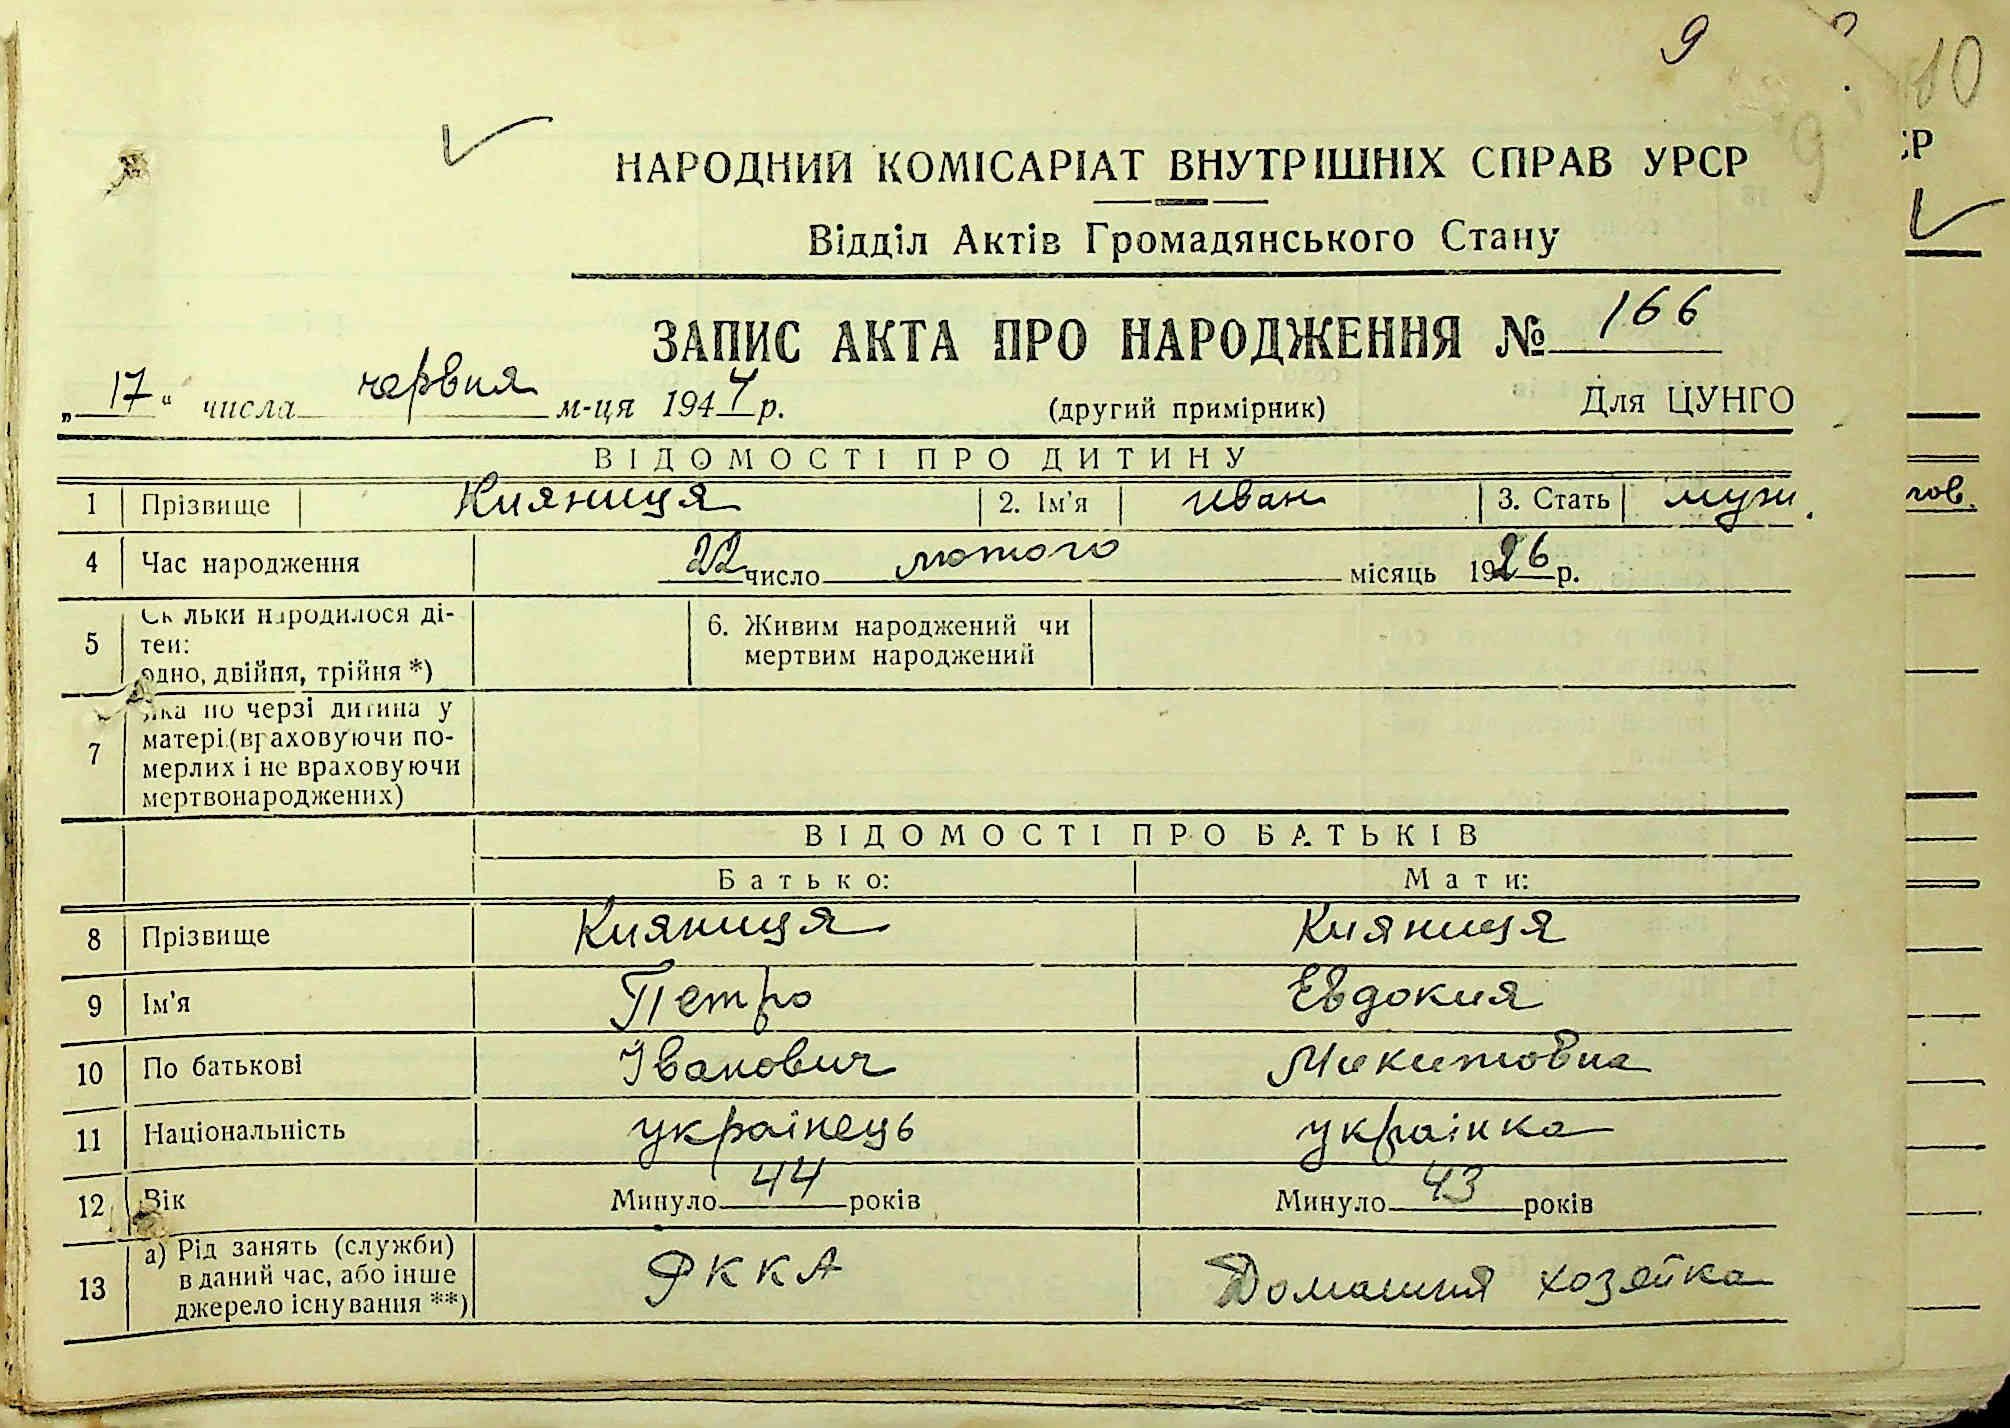 9
10
9
НАРОДНИЙ КОМІСАРІАТ ВНУТРІШНІХ СПРАВ УРСР
СР
Відділ Актів Громадянського Стану
ЗАПИС АКТА ПРО НАРОДЖЕННЯ № 166
„ 17 “ числа червня м-ця 1944 р. (другий примірник) Для ЦУНГО
ВІДОМОСТІ ПРО ДИТИНУ
1 Прізвище Кияниця 2. Ім'я Иван 3. Стать муж.
чов.
4 Час народження 22 число лютого місяць 1926 р.
5 Ск льки народилося ді-
теи:
одно, двійня, трійня *)
6. Живим народжений чи
мертвим народжений
7 яка по черзі дитина у
матері (враховуючи по-
мерлих і не враховуючи
мертвонароджених)
ВІДОМОСТІ ПРО БАТЬКІВ
Батько: Мати:
8 Прізвище Кияниця Кияниця
9 Ім'я Петро Евдокия
10 По батькові Іванович Микитовна
11 Національність українець українка
12 Вік Минуло 44 років Минуло 43 років
13 а) Рід занять (служби)
в даний час, або інше
джерело існування **)
РККА Домашня хозяйка